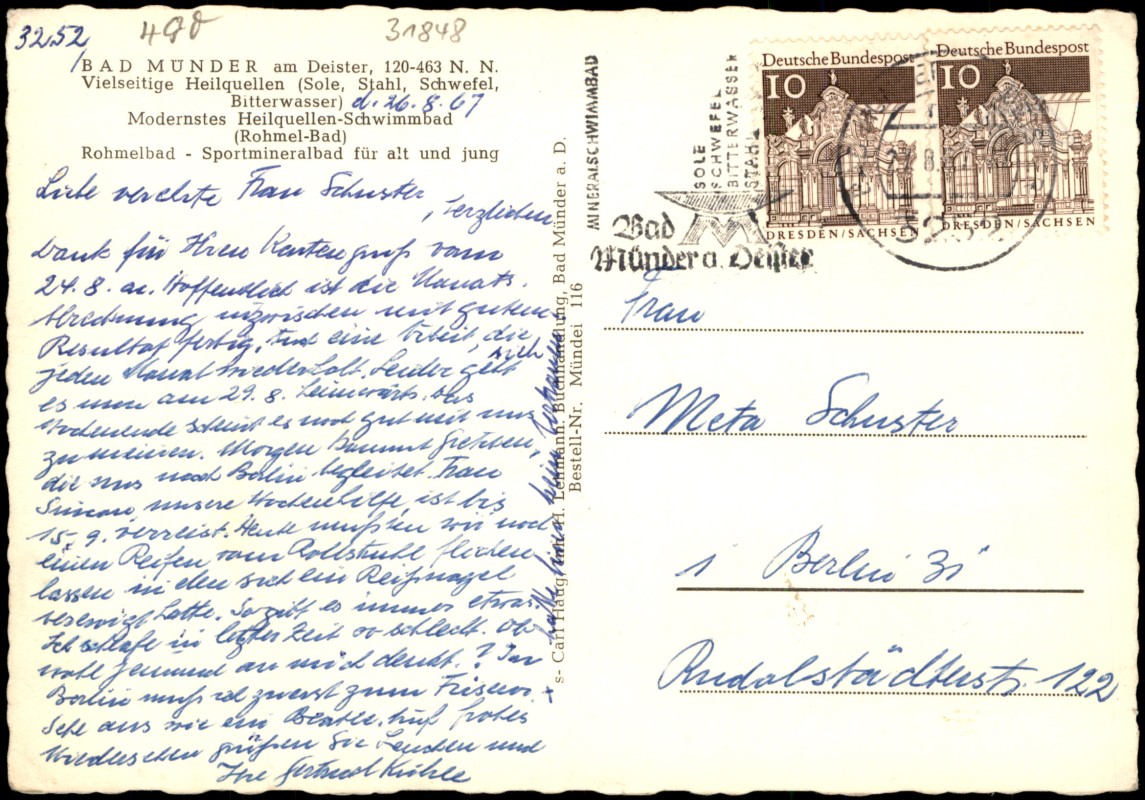 3252
490
31848
BAD MÜNDER am Deister, 120-463 N. N.
Vielseitige Heilquellen (Sole, Stahl, Schwefel,
Bitterwasser) d. 26.8.67
Modernstes Heilquellen-Schwimmbad
(Rohmel-Bad)
Rohmelbad - Sportmineralbad für alt und jung
Liebe verehrte Frau Schuster,
herzlichen
Dank für Ihren Kartengruß vom
24.8. an. Hoffentlich ist die Monats-
Abrechnung inzwischen mit gutem
Resultat fertig. eine Arbeit, die sich
jeden Monat wiederholt. Leider geht
es nun am 29.8. heimwärts. Das
Wochenende scheint es noch gut mit uns
zu meinen. Morgen kommt Gretchen,
die uns nach Berlin begleitet. Frau
Simon, unsere Wochenhilfe, ist bis
15.9. verreist. Heute mußten wir noch
einen Reifen vom Rollstuhl flicken
lassen in den sich ein Reißnagel
hatte. So gibt es immer etwas.
Ich schlafe in letzter Zeit so schlecht. Ob
wohl jemand an mich denkt? In
Berlin muß ich zuerst zum Friseur
sehe aus wie ein Beatle. Auf frohes
Wiedersehen grüßen Sie und
Ihre Gertrud Kühle
habe kein
s- Carl Haug H. Lehmann, Buchhandlung, Bad Münder a. D.
Bestell-Nr. Mündei 116
MINERALSCHWIMMBAD
SOLE
SCHWEFEL
BITTERWASSER
STAHL
Bad
Münder a. Deister
Deutsche Bundespost
10
DRESDEN/SACHSEN
Deutsche Bundespost
10
DRESDEN/SACHSEN
Frau
Meta Schuster
1 Berlin 31
Rudolstädterstr. 122